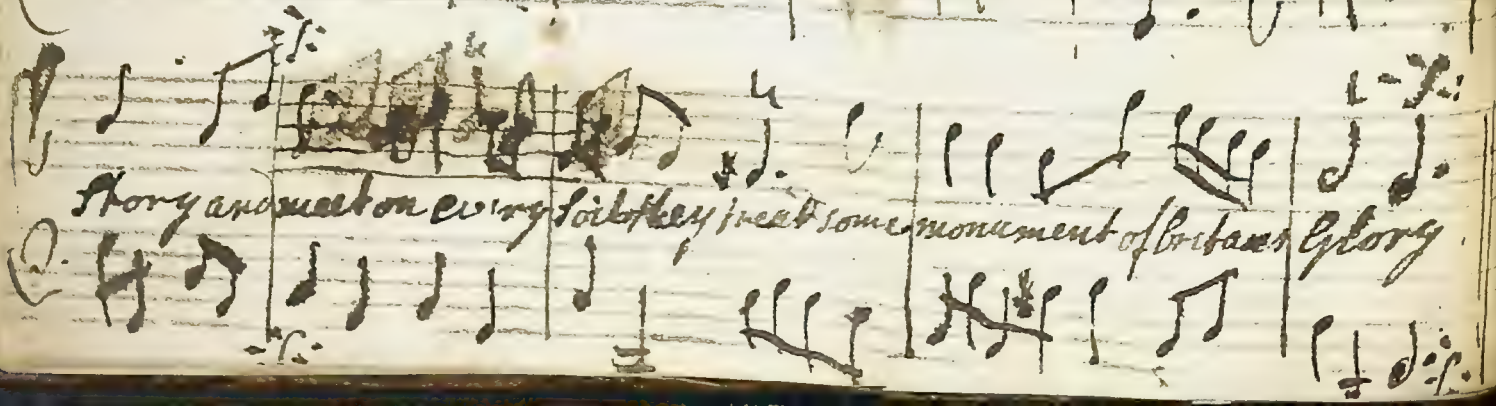 Story and meet on every Soil they treat some monument of britans Glory